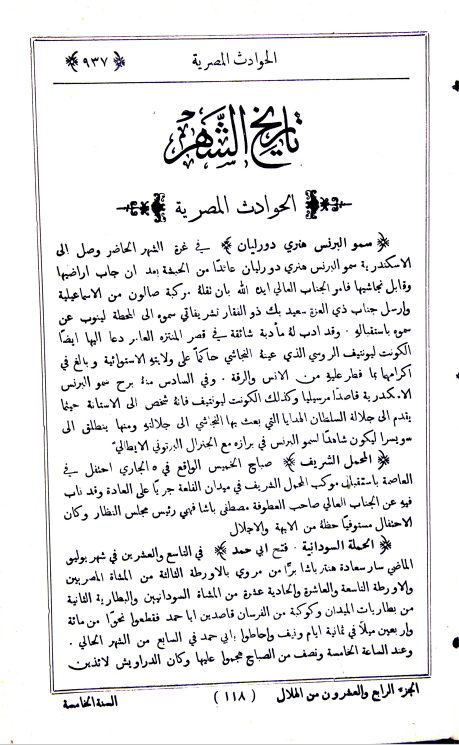 الحوادث المصرية ﴿ ٩٣٧ ﴾
تاريخ الشهر
الحوادث المصرية
﴿ سمو البرنس هنري دورليان ﴾ في غرة الشهر الحاضر وصل الى
الاسكندرية سمو البرنس هنري دورليان عائدًا من الحبشة بعد ان جاب اراضيها
وقابل نجاشيها فامر الجناب العالي ايده الله بان نقله مركبة صالون من الاسماعيلية
وارسل جناب ذي العزة سعيد بك ذو الفقار تشريفاتي سموه الى المحطة لينوب عن
سموه باستقباله . وقد ادب له مأدبة شائقة في قصر المنتزه العامر دعا اليها ايضًا
الكونت ليونتيف الروسي الذي عينه النجاشي حاكمًا على ولايته الاستوائية وبالغ في
اكرامها بما فطر عليه من الانس والرقة . وفي السادس منه برح سمو البرنس
الاسكندرية قاصدًا مرسيليا وكذلك الكونت ليونتيف فانه شخص الى الاستانة حيثما
يقدم الى جلالة السلطان الهدايا التي بعث بها النجاشي الى جلالته ومنها ينطلق الى
سويسرا ليكون شاهدًا لسمو البرنس في برازه مع الجنرال البرتوني الايطالي
﴿ المحمل الشريف ﴾ صباح الخميس الواقع في ٥ الجاري احتفل في
العاصمة باستقبال موكب المحمل الشريف في ميدان القلعة جريًا على العادة وقد ناب
فيه عن الجناب العالي صاحب العطوفة مصطفى باشا فهمي رئيس مجلس النظار وكان
الاحتفال مستوفيًا حظه من الابهة والاجلال
﴿ الحملة السودانية . فتح ابي حمد ﴾ في التاسع والعشرين في شهر يوليو
الماضي سار سعادة هنتر باشا برًا من مروي بالاورطة الثالثة من المشاة المصريين
والاورطة التاسعة والعاشرة والحادية عشرة من المشاة السودانيين والبطارية الثانية
من بطاريات الميدان وكوكبة من الفرسان قاصدين ابا حمد فقطعوا نحوًا من مائة
واربعين ميلًا في ثمانية ايام ونيف واحاطوا بابي حمد في السابع من الشهر الحالي .
وعند الساعة الخامسة ونصف من الصباح هجموا عليها وكان الدراويش لائذين
الجزء الرابع والعشرون من الهلال ( ١١٨ ) السنة الخامسة